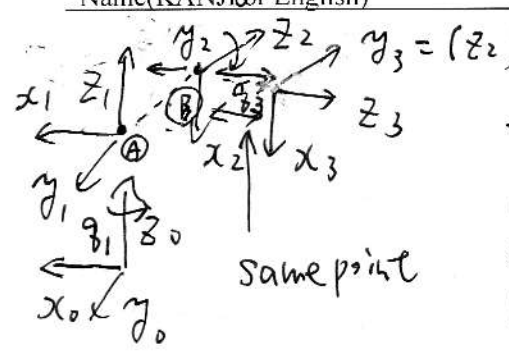 Name(KANJI or English)
y₂ z₂ y₃ = (z₂
x₁ z₁ Ⓑ q₃ z₃
Ⓐ x₂ x₃
y₁
q₁ z₀ same point
x₀ y₀